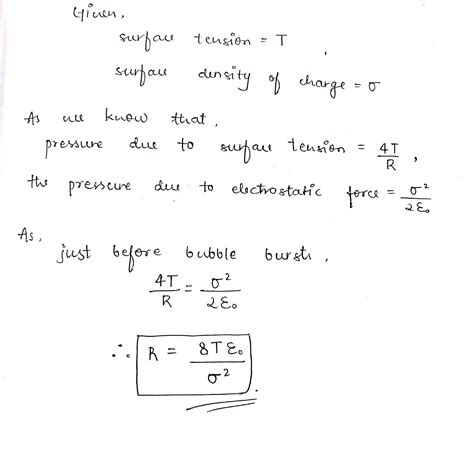 Given,
surface tension = T,
surface density of charge = σ
As we know that,
pressure due to surface tension = 4T/R,
the pressure due to electrostatic force = σ²/2ε₀
As,
just before bubble bursts,
4T/R = σ²/2ε₀
∴ R = 8Tε₀/σ²